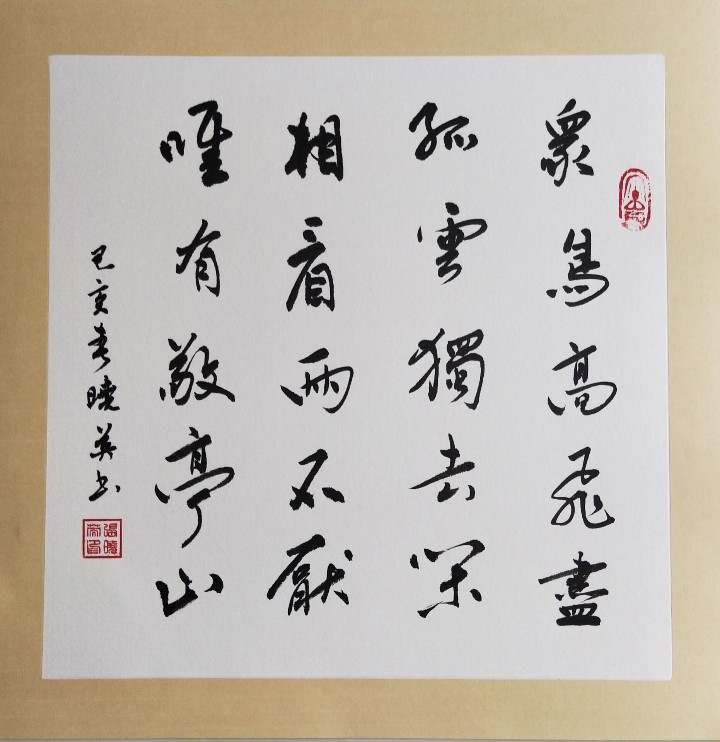 眾鳥高飛盡
孤雲獨去閑
相看兩不厭
唯有敬亭山
己亥春曉英書